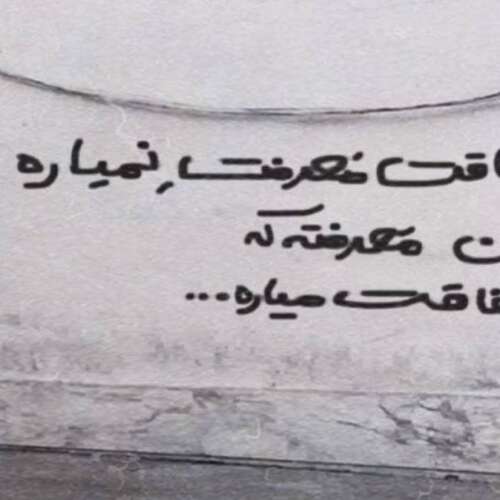 اقت معرفت نمیاره
ن معرفته که
فاقت میاره...